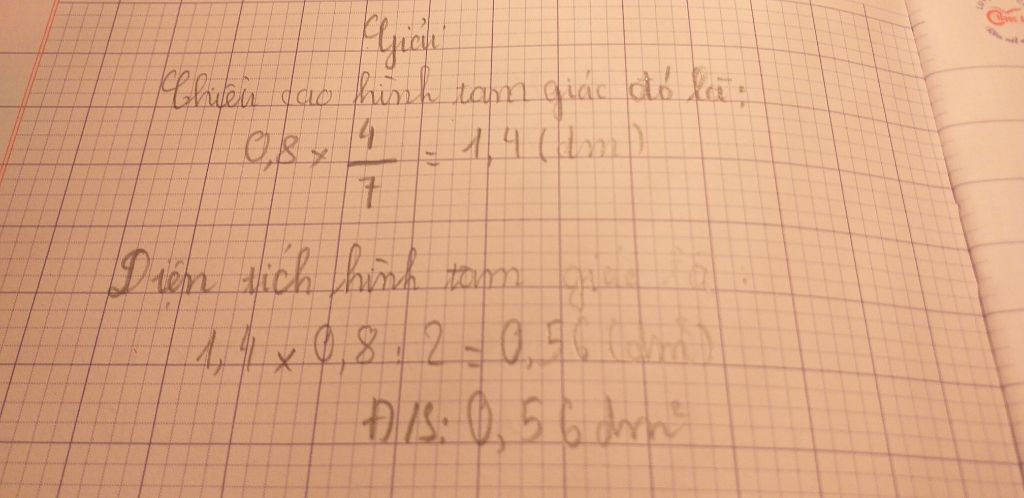 Giải
Chiều cao hình tam giác đó là:
0,8 × 4/7 = 1,4 (dm)
Diện tích hình tam giác là:
1,4 × 0,8 : 2 = 0,56 (dm²)
Đ/S: 0,56 dm²